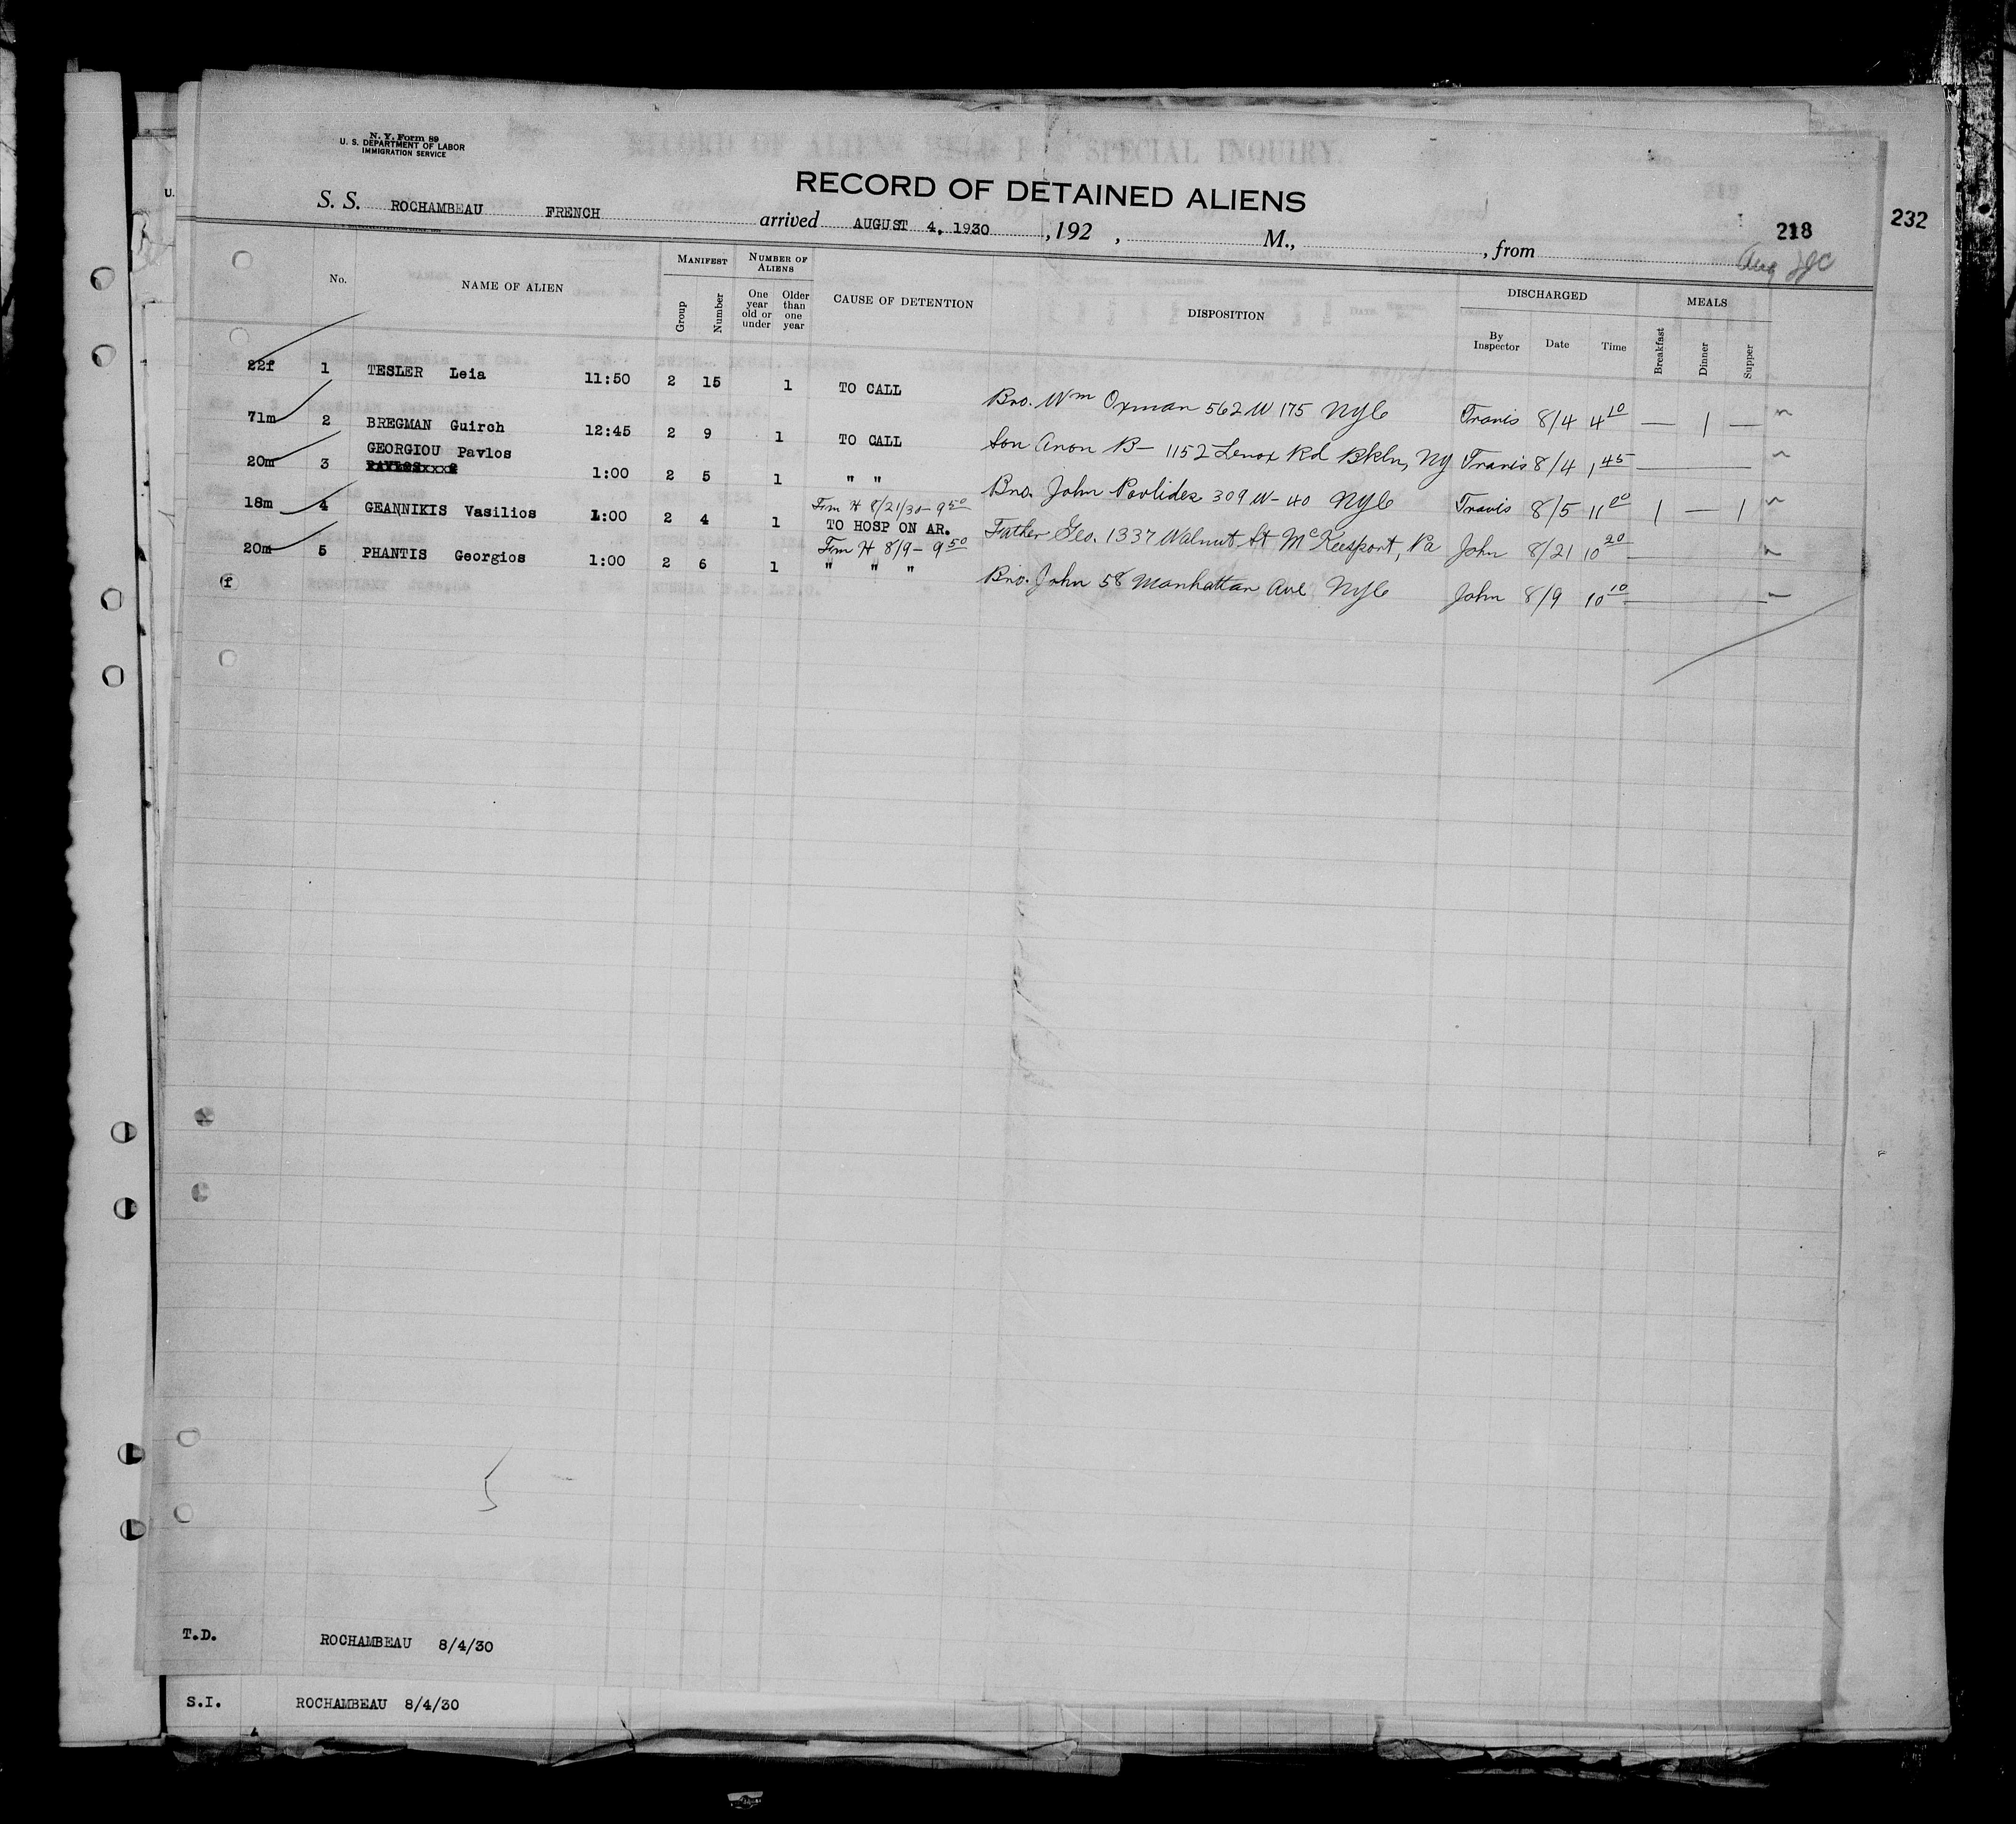 N. Y. Form 89
U. S. DEPARTMENT OF LABOR
IMMIGRATION SERVICE
RECORD OF ALIENS HELD SPECIAL INQUIRY.
RECORD OF DETAINED ALIENS
S. S. ROCHAMBEAU FRENCH arrived AUGUST 4, 1930 , 192 , M., , from
218
232
Aug
No. NAME OF ALIEN MANIFEST Group Number NUMBER OF ALIENS One year old or under Older than one year CAUSE OF DETENTION DISPOSITION DISCHARGED By Inspector Date Time MEALS Breakfast Dinner Supper
22f 1 TESLER Leia 11:50 2 15 1 TO CALL Bro. Wm Oxman 562 W 175 NYC Travis 8/4 4 10 — 1 —
71m 2 BREGMAN Guirch 12:45 2 9 1 TO CALL Son Aron B— 1152 Lenox Rd Bkln, NY Travis 8/4 1 45
GEORGIOU Pavlos
20m 3 1:00 2 5 1 " " Bro. John Pavlides 309 W-40 NYC Travis 8/5 11 00 1 — 1
Frm H 8/21/30 - 9 50
18m 4 GEANNIKIS Vasilios 1:00 2 4 1 TO HOSP ON AR. Father Geo. 1337 Walnut St McKeesport, Pa John 8/21 10 20
Frm H 8/9 - 9 50
20m 5 PHANTIS Georgios 1:00 2 6 1 " " " Bro. John 58 Manhattan Ave NYC John 8/9 10 10
f
5
T.D. ROCHAMBEAU 8/4/30
S.I. ROCHAMBEAU 8/4/30